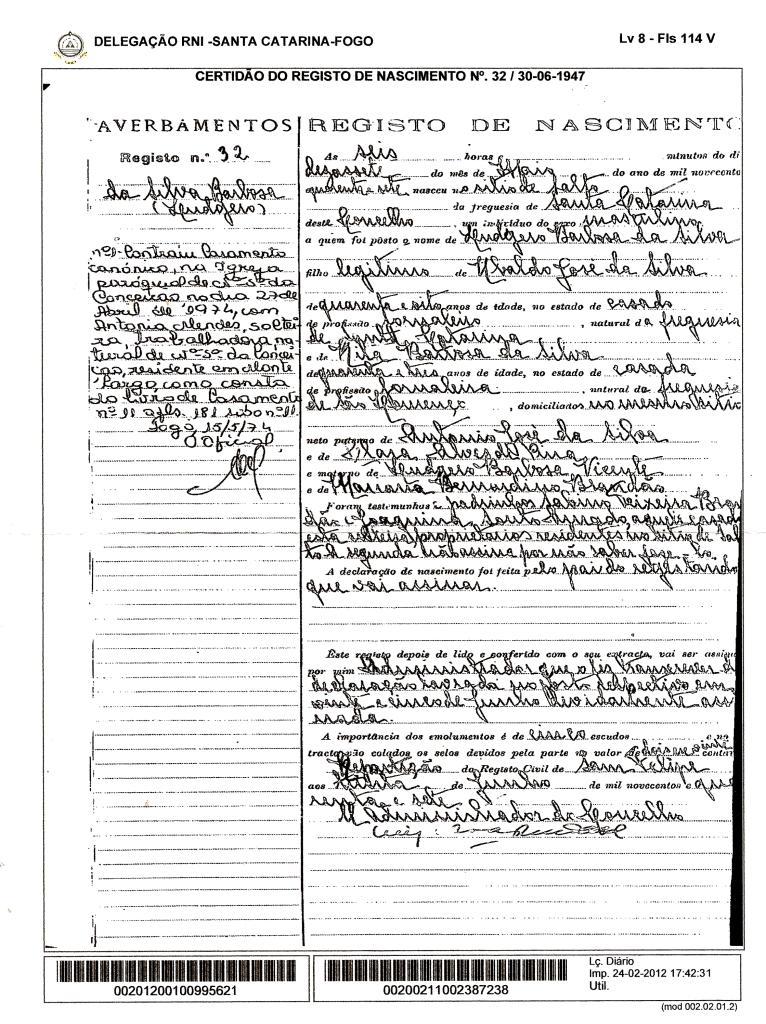 DELEGAÇÃO RNI -SANTA CATARINA-FOGO
Lv 8 - Fls 114 V
CERTIDÃO DO REGISTO DE NASCIMENTO Nº. 32 / 30-06-1947
AVERBAMENTOS
Registo n.º 32
da Silva Barbosa
nº1-Contraiu Casamento
canónico, na Igreja
paroquial de Nª Sª da
Conceição no dia 27 de
Abril de 1974, com
Antonia Mendes, soltei-
ra, trabalhadora, na-
tural de Nª Sª da Concei-
ção, residente em Monte
Largo, como consta
do livro de Casamento
nº 11 a fls. 181 sob o nº 11.
Fogo, 15/5/74
O Oficial,
REGISTO DE NASCIMENTO
Às seis horas minutos do di
dezassete do mês de Maio do ano de mil novecento
quarenta e sete nasceu no sitio de Salto
da freguesia de Santa Catarina
deste Concelho, um indivíduo do sexo masculino
a quem foi pôsto o nome de Barbosa da Silva
filho legitimo de José da Silva
de quarenta e oito anos de idade, no estado de casado
de profissão , natural da freguesia
de Santa Catarina
e de Barbosa da Silva
de quarenta e tres anos de idade, no estado de casada
de profissão , natural da freguesia
de São Lourenço , domiciliados no mesmo sitio
neto paterno de Antonio José da Silva
e de Alves de Pina
e materno de Barbosa Vicente
e de Bernardino Brandão
Foram testemunhas e padrinhos Sabino Teixeira Bra
dão e Joaquina aquele casado
esta solteira, proprietarios residentes no sitio de Sal
to. A segunda não assina por não saber faze-lo.
A declaração de nascimento foi feita pelo pai do registando
que vai assinar.
Este registo depois de lido e conferido com o seu extracto, vai ser assign
por mim Administrador que o fiz transcrever d
declaração respectivo em
vinte e cinco de Junho devidamente assi
nada.
A importância dos emolumentos é de escudos e no
tracto vão colados os selos devidos pela parte no valor de
Repartição do Registo Civil de Sam Felipe
aos trinta de Junho de mil novecentos e qua
renta e sete
O Administrador do Concelho
00201200100995621
00200211002387238
Lç. Diário
Imp. 24-02-2012 17:42:31
Util.
(mod 002.02.01.2)